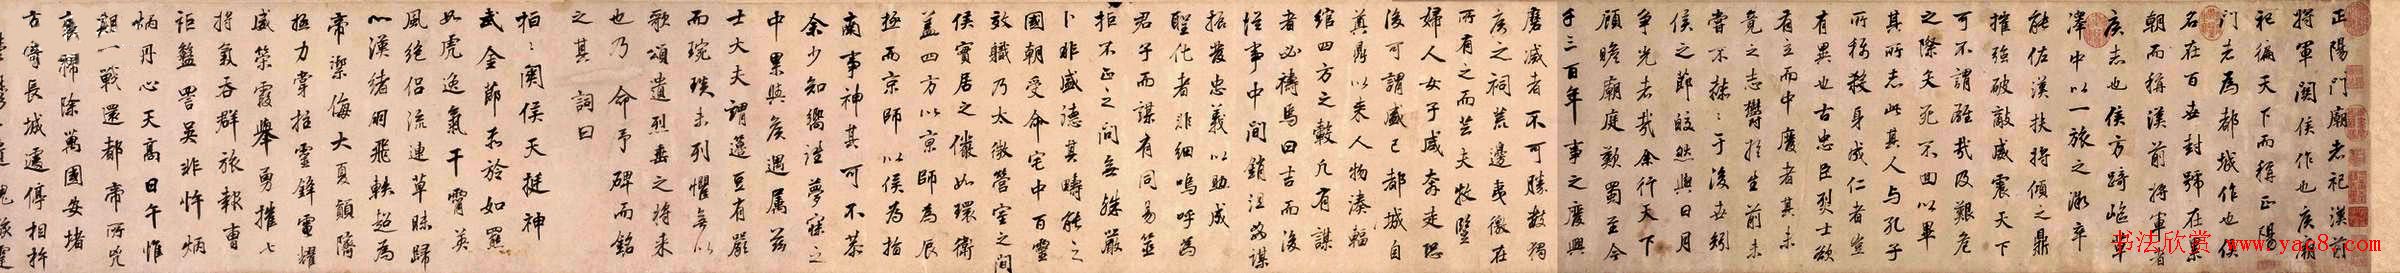 正陽門廟者祀漢前
將軍關侯作也侯廟
祀徧天下而稱正陽
門者為都城作也侯
名在百世封號在累
朝而稱漢前將軍者
侯志也侯方踦嶇草
澤中以一旅之微卒
能佐漢扶將傾之鼎
摧強破敵威震天下
可不謂雄哉及艱危
之際矢死不回以畢
其所志此其人與孔子
所稱殺身成仁者豈
有異也古忠臣烈士欲
有立而中廢者其未
竟之志欝於生前未
嘗不赫〻于後世矧
侯之節皎然與日月
爭光者哉余行天下
顧瞻廟庭歎蜀至今
千三百年事之廢興
磨滅者不可勝數獨
侯之祠荒邊夷徼在
所有之而芸夫牧豎
婦人女子咸奔走恐
後可謂盛已都城自
奠鼎以來人物湊輻
綰四方之轂凡有謀
者必禱焉曰吉而後
從事中間銷沮謀
振發忠義以助成
聖化者非細嗚呼為
君子而謀有同易筮
拒不正之間無殊嚴
卜非盛德其疇能之
國朝受命宅中百靈
效職乃太微營室之間
侯實居之儼如環衛
蓋四方以京師為辰
極而京師以侯為指
南事神其可不恭
余少知嚮往夢寐之
中累與侯遇属茲
士大夫謂籩豆有嚴
而琬琰未列懼無以
歌頌遺烈垂之將來
也乃命予碑而銘
之其詞曰
桓〻關侯天挺神
武金節赤於如羆
如虎逸氣干霄英
風絕侶流連草昧歸
心漢緒羽飛軼超為
帝禦侮大夏顛隮
極力掌拄靈鋒電耀
威策霞舉勇摧七
將氣吞群旅報曹
詎盬詈吳非忤炳
炳丹心天高日午惟
一戰還都帝所兇
襄禍除萬國安堵
古寄長城遽停相杵
书法欣赏 www.yac8.com